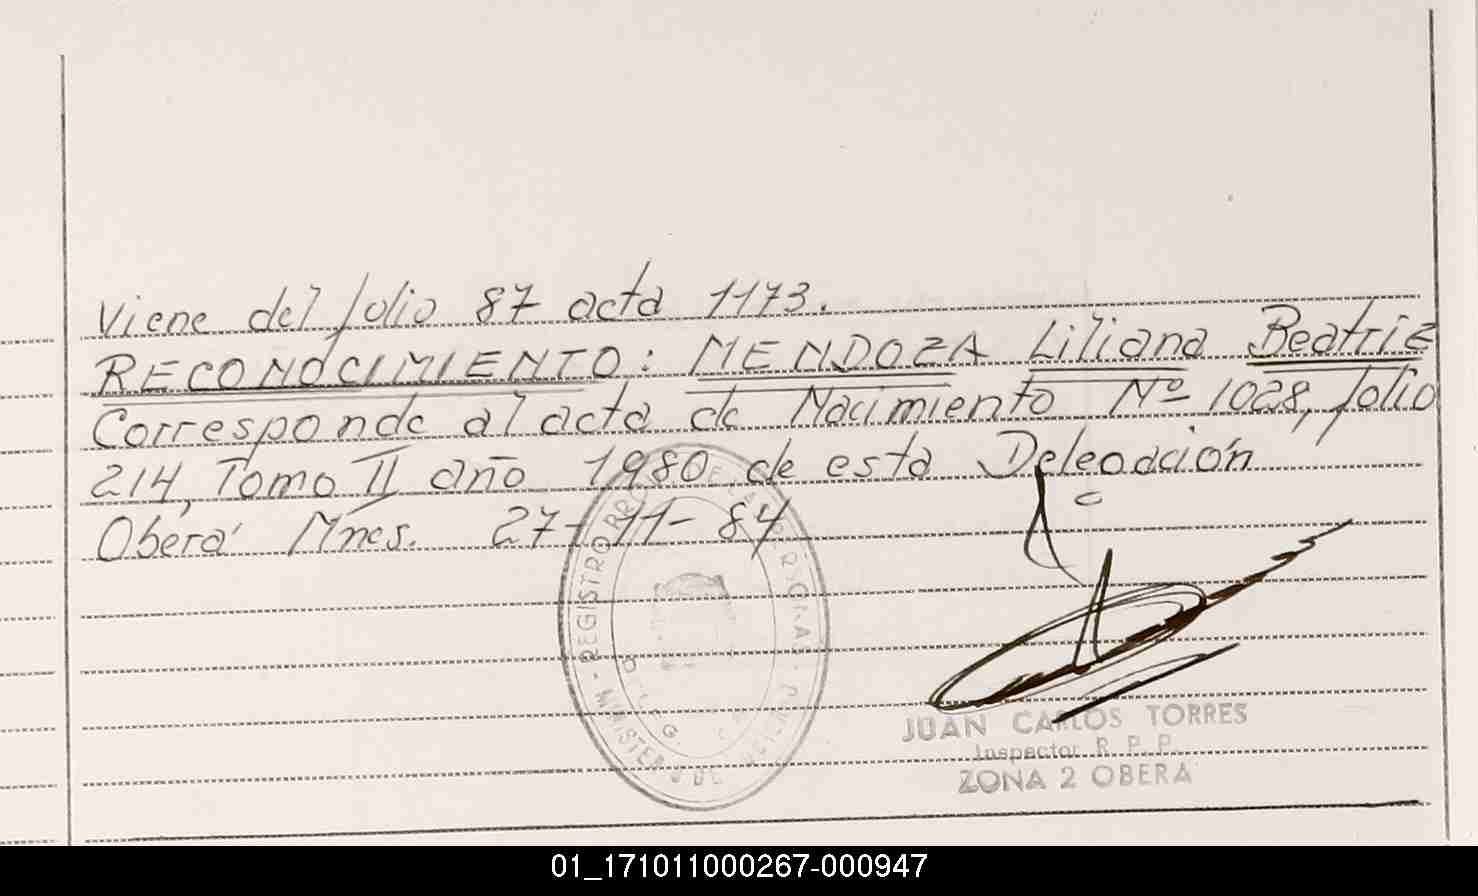 Viene del folio 87 acta 1173.
RECONOCIMIENTO: MENDOZA Liliana Beatriz
Corresponde al acta de Nacimiento Nº 1028, folio
214, Tomo II año 1980 de esta Delegación
Oberá Mnes. 27-11-84
REGISTRO
MINISTERIO DE
JUAN CARLOS TORRES
Inspector R. P. P.
ZONA 2 OBERA
01_171011000267-000947